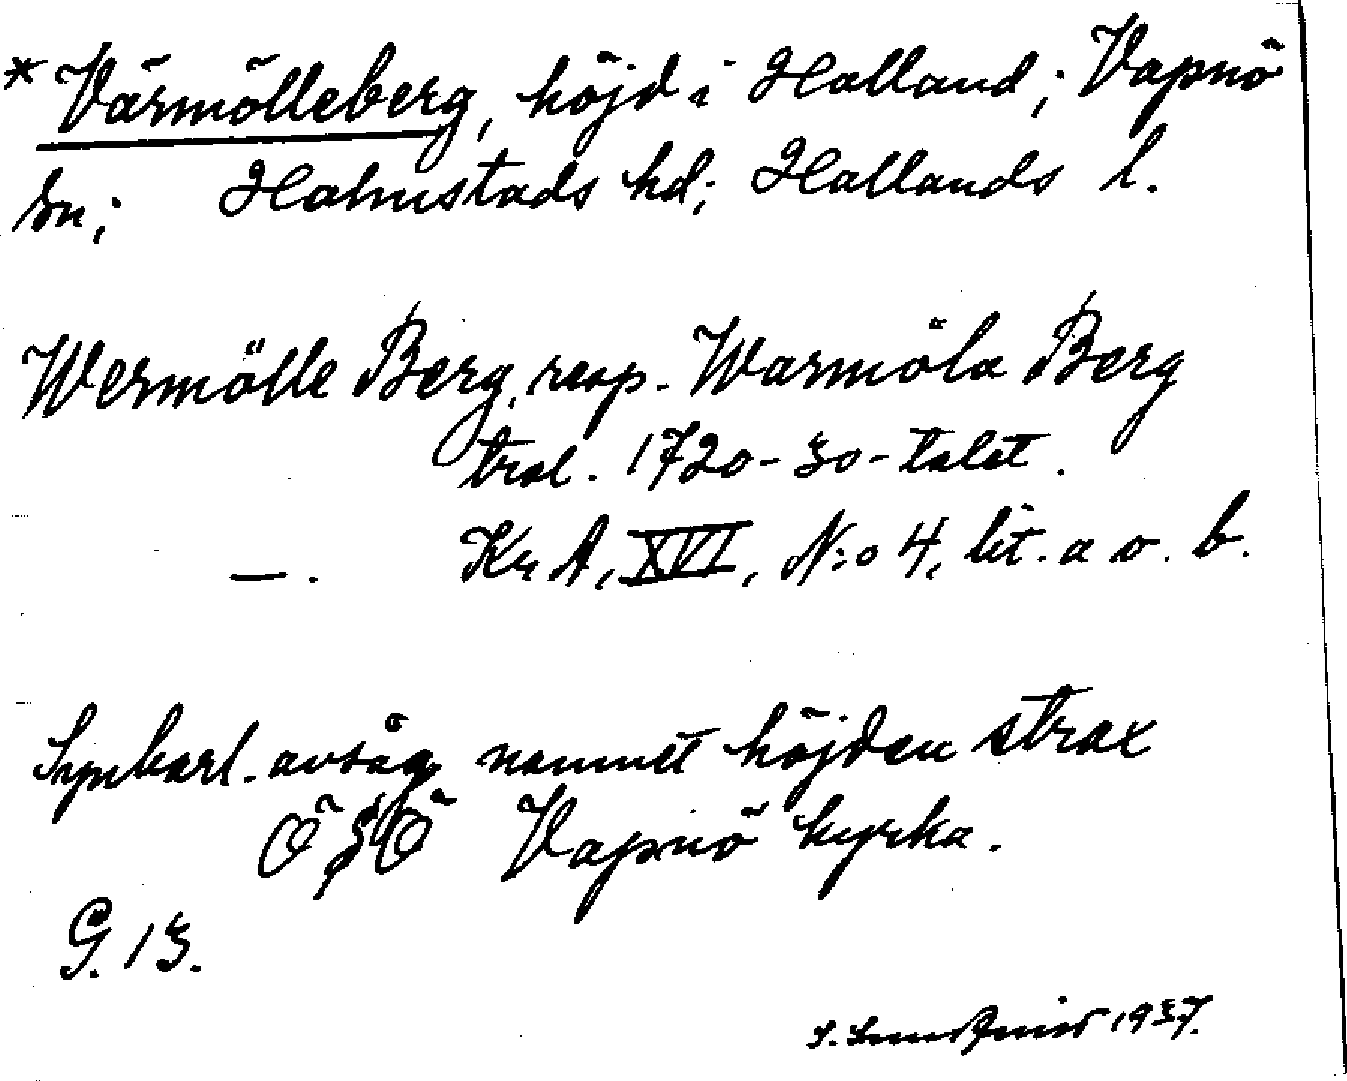 * Värmölleberg, höjd i Halland; Vapnö
sn; Halmstads hd; Hallands l.
Wermölle Berg, resp. Warmöla Berg
trol. 1720-30-talet.
—. KrA, XVI, N:o 4, lit. a o. b.
Synbarl. avsåg namnet höjden strax
ÖSÖ Vapnö kyrka.
G. 13.
S. 1937.